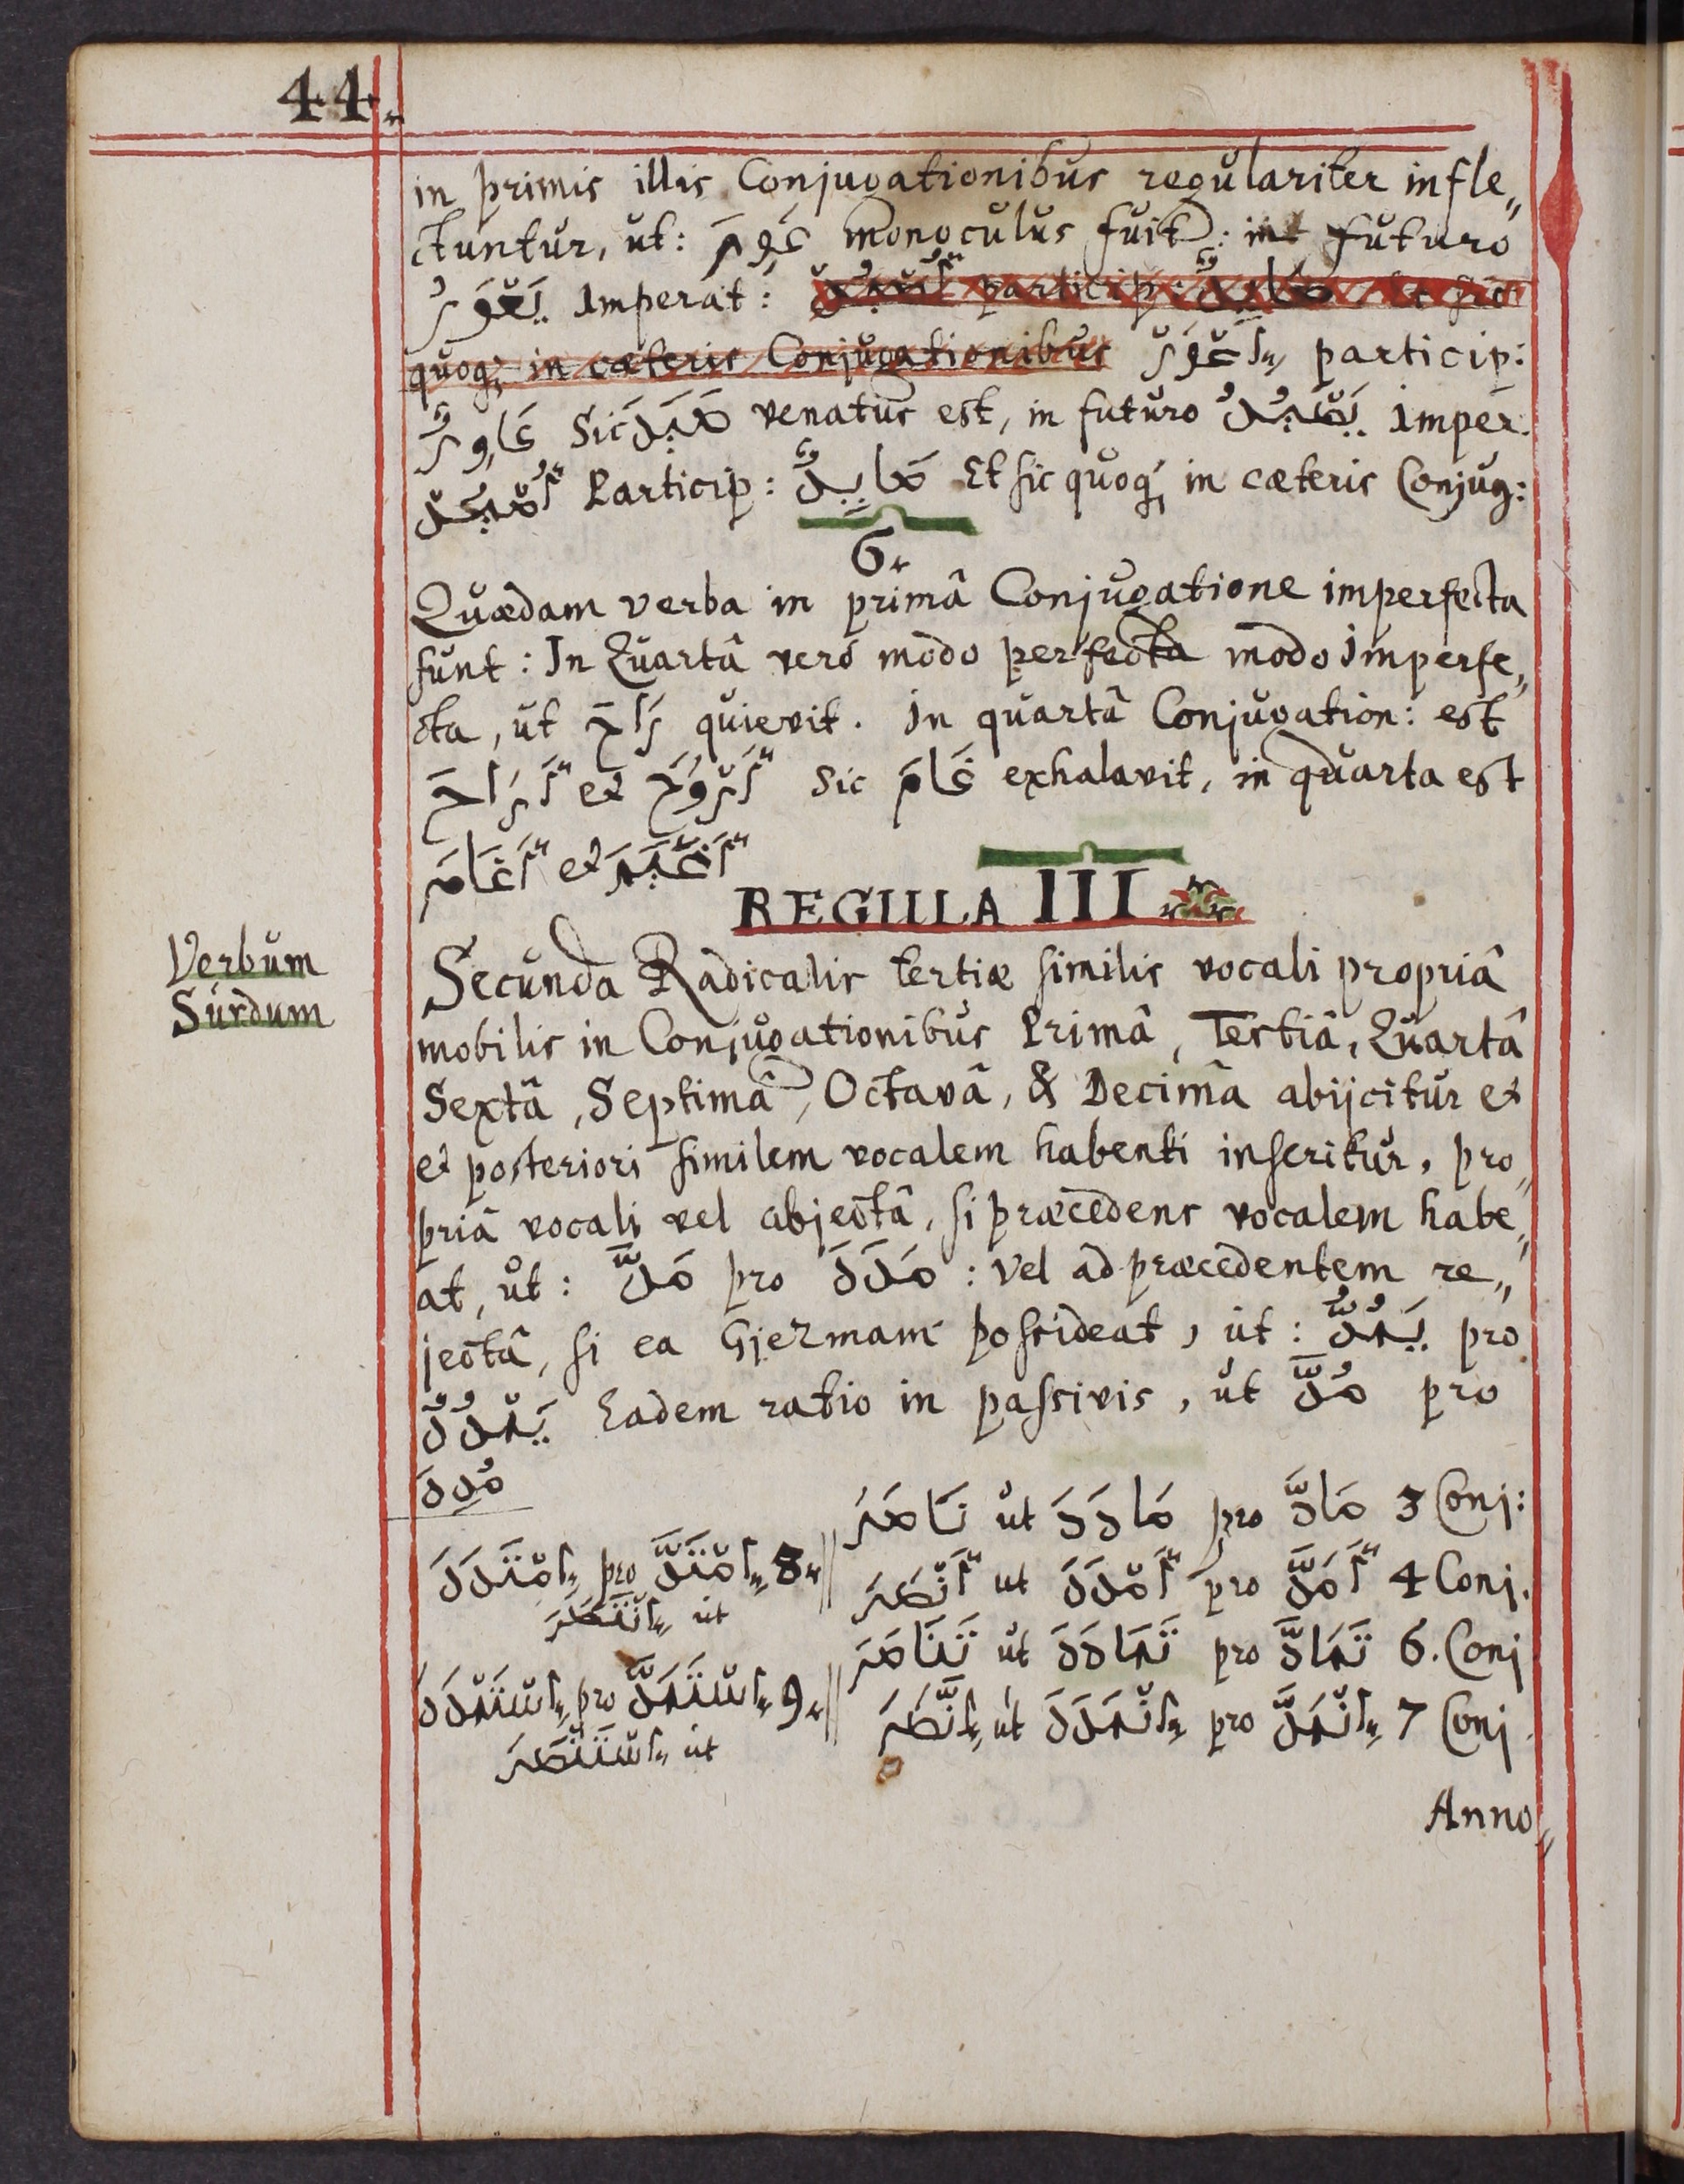 44.
in primis illis Conjugationibus regulariter infle„
ctuntur, ut: عَوِرَ monoculus fuit: in futuro
يَعْوَرُ Imperat: particip: صَايِدٌ et sic
quoq; in cæteris Conjugationibus إِعْوَرْ particip:
عَاوِرٌ Sic صَيَدَ venatus est, in futuro يَصْيُدُ Imper.
أُصْيُدْ Particip: صَايِدٌ Et sic quoq; in cæteris Conjug:
6.
Quædam verba in primâ Conjugatione imperfecta
sunt: In Quartâ verò modo perfecta modo Imperfe„
cta, ut رَاحَ quievit. In quartâ Conjugation: est
أَرَاحَ et أَرْوَحَ Sic غَامَ exhalavit, in quarta est
أَغَامَ et أَغْيَمَ
REGULA III
Verbum
Surdum
Secunda Radicalis tertiæ similis vocali propriâ
mobilis in Conjugationibus Primâ, Tertiâ, Quartâ
Sextâ, Septimâ, Octavâ, & Decimâ abijcitur et
et posteriori similem vocalem habenti inseritur, pro„
priâ vocali vel abjectâ, si præcedens vocalem habe„
at, ut: مَدَّ pro مَدَدَ : vel ad præcedentem re„
jectâ, si ea Gjezmam possideat, ut: يَمُدُّ pro
يَمْدُدُ Eadem ratio in passivis, ut مُدَّ pro
مُدِدَ
3 Conj: مَادَّ pro مَادَدَ ut نَاصَرَ
4 Conj. أَمَدَّ pro أَمْدَدَ ut أَنْصَرَ
6. Conj تَمَادَّ pro تَمَادَدَ ut تَنَاصَرَ
7 Conj. إِنْمَدَّ pro إِنْمَدَدَ ut إِنَّصَرَ
8. إِمْتَدَّ pro إِمْتَدَدَ
ut إِنْتَصَرَ
9. إِسْتَمَدَّ pro إِسْتَمْدَدَ
ut إِسْتَنْصَرَ
Anno„